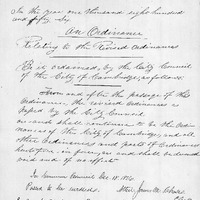 In the year one thousand eight hundred
and fifty six
An Ordinance
Relating to the Revised Ordinances
Be it ordained, by the City Council
of the City of Cambridge, as follows:
From and after the passage of this
Ordinance, the revised Ordinances as
passed by the City Council
on such shall continue to be the Ordi
nances of the City of Cambridge, and all
other Ordinances and parts of Ordinances
heretofore in force and shall be deemed
void and of no effect.
In Common Council Dec. 18. 1856.
Passed to be enrolled. Attest,